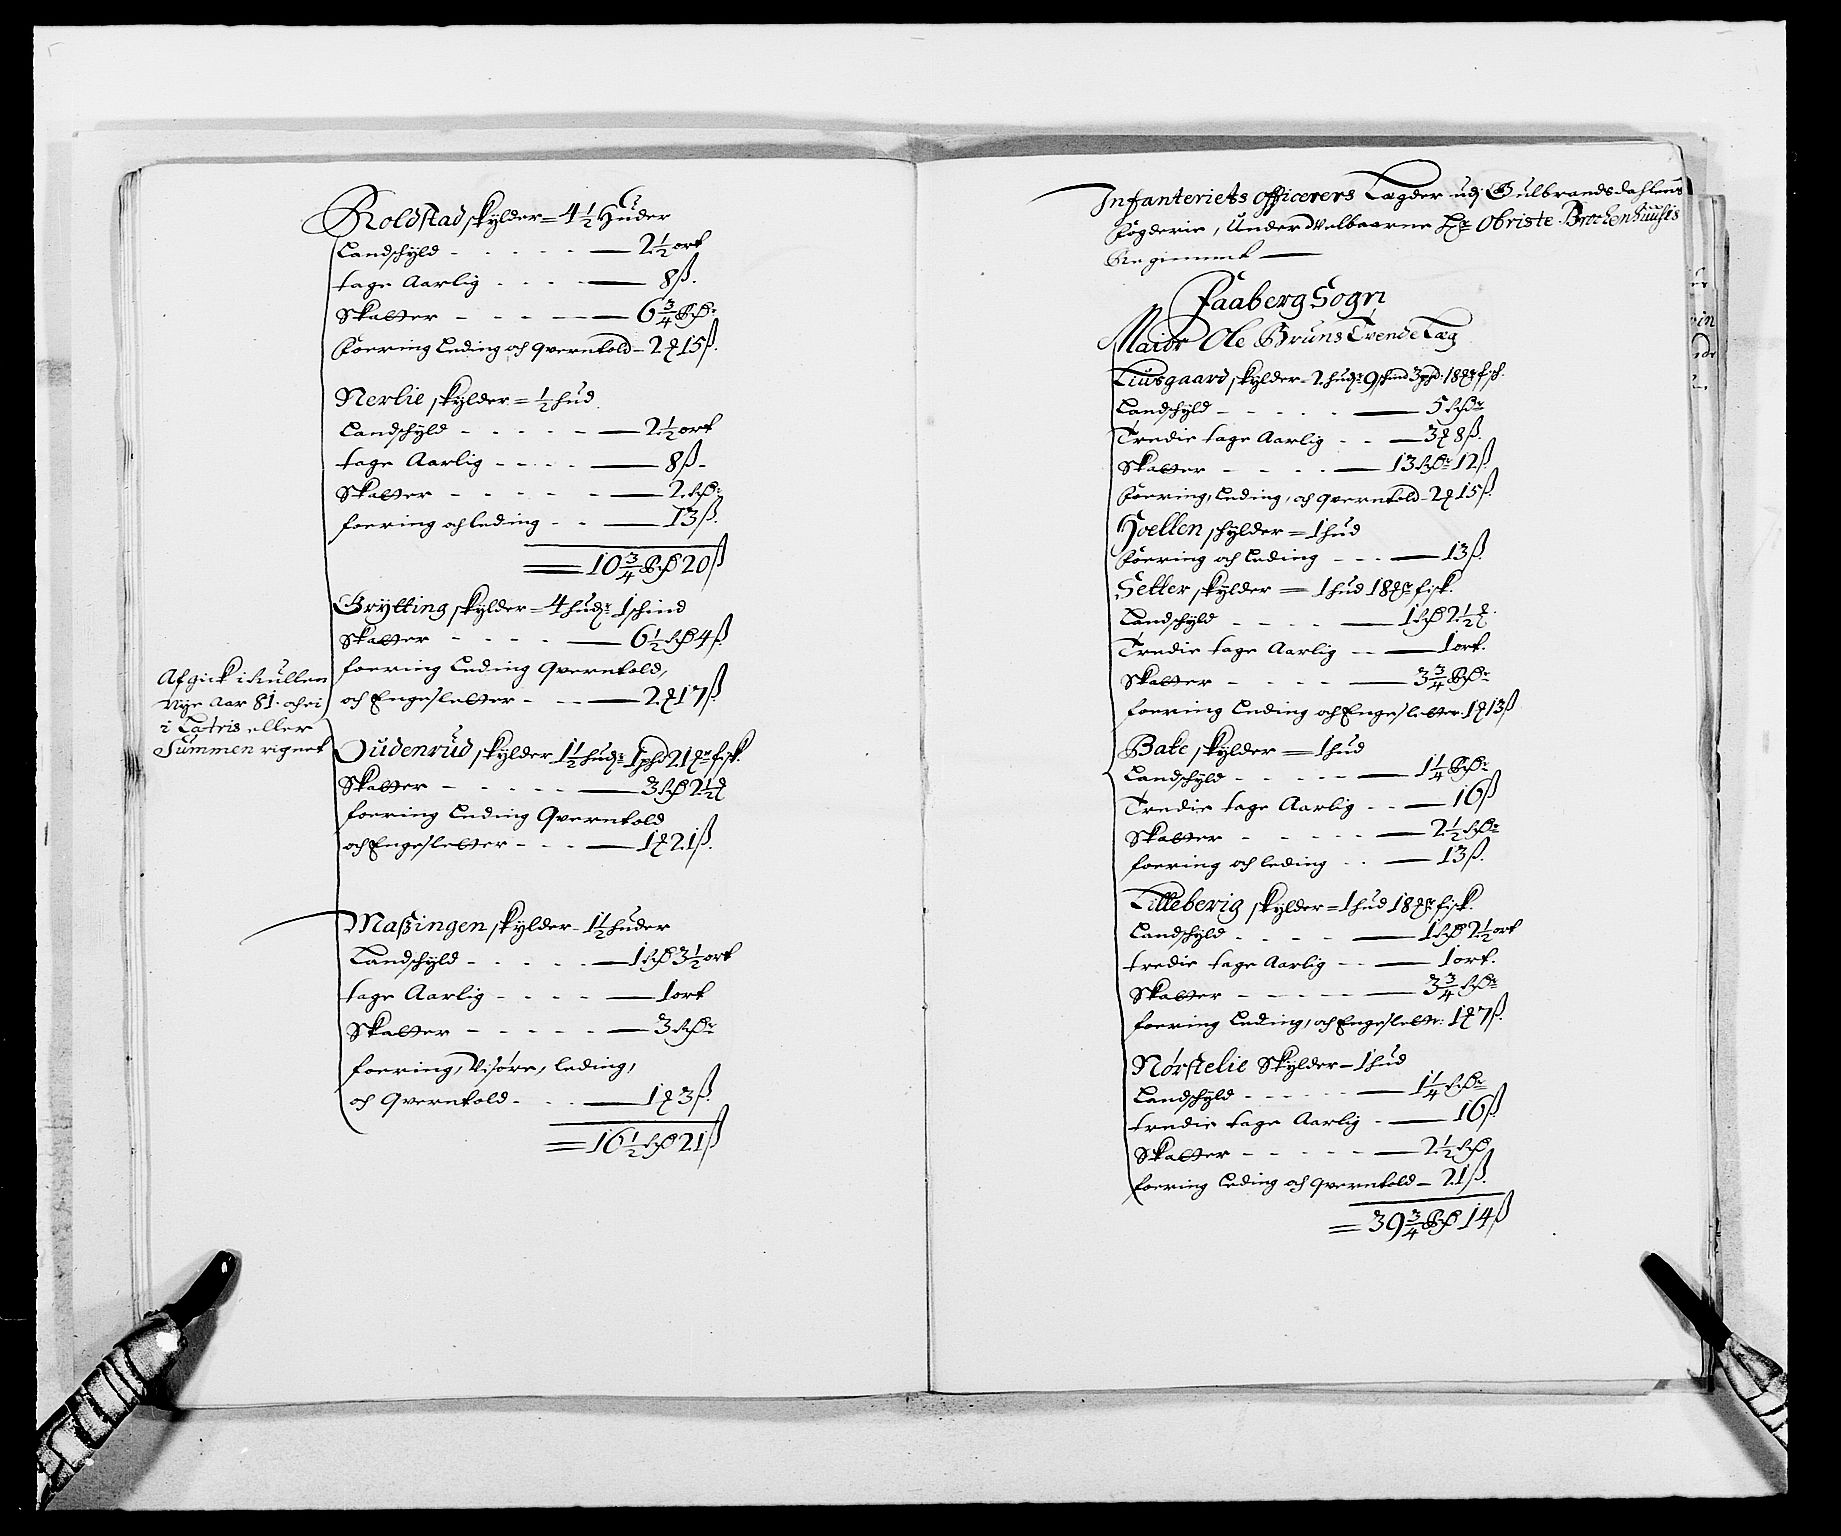 Roldstad skylder = 4 1/2 Huder
Landschyld - - - - - — 2 1/2 ort
tage Aarlig - - - - — 8 ß.
Skatter - - - - - — 6 3/4 Rdr
foering Leding och Qverntold - 2 ɋ 15 ß.
Nerlie skylder = 1/2 hud
Landschyld - - - - - — 2 1/2 ort
tage Aarlig - - - - — 8 ß -
Skatter - - - - - — 2 Rdr
foering och leding - - — 13 ß.
= 10 3/4 Rd 20 ß
Grytting skylder = 4 hudr 1 schind
Skatter - - - - — 6 1/2 Rd 4 ß
foering Leding Qverntold,
och Engesletter - - - — 2 ɋ 17 ß
Afgick i Rullen
Nye Aar 81. och ei
i Lateris eller
Summen rignet
Oudenrud skylder 1 1/2 hudr 1 phd 21 ɋr fisk.
Skatter - - - - - — 3 Rd 2 1/2 ɋ
foering Leding Qverntold
och Engesletter - - - — 1 ɋ 21 ß.
Maßingen skylder - 1 1/2 huder
Landschyld - - - - - — 1 Rd 3 1/2 ort
tage Aarlig - - - - — 1 ort
Skatter - - - - - — 3 Rdr
foering, Visøre, leding,
och Qverntold - - - — 1 ɋ 3 ß.
= 16 1/2 Rd 21 ß
Infanteriets officerers Lægder udj Gulbrandsdahlens
fogderie, Under Welbaarne Hr Obriste Brochenhuusis
Regiment —
Faaberg Sogn
Maior Ole Bruns Tvende Læg
Liusgaard skylder - 2 hudr 9 schind 3 phd 18 ɋr fisk.
Landschyld - - - - - — 5 Rdr
Tredie tage Aarlig - - — 3 ɋ 8 ß.
Skatter - - - - — 13 Rdr 12 ß.
foering, Leding, och Qverntold - 2 ɋ 15 ß.
Hoellen schylder = 1 hud
foering och Leding - - - — 13 ß.
Setter skylder = 1 hud 18 ɋr fisk.
Landschyld - - - - — 1 Rd 2 1/2 ɋ.
Tredie tage Aarlig - - — 1 ort.
Skatter - - - - - — 3 3/4 Rdr
foering Leding och Engesletter 1 ɋ 13 ß
Bake skylder = 1 hud
Landschyld - - - - - — 1 1/4 Rdr
Tredie tage Aarlig - - — 16 ß
Skatter - - - - - — 2 1/2 Rdr
foering och leding - - — 13 ß.
Lilleberig skylder = 1 hud 18 ɋr fisk.
Landschyld - - - - — 1 Rd 2 1/2 ort
tredie tage Aarlig - - — 1 ort.
Skatter - - - - - — 3 3/4 Rdr
foering Leding, och Engeslett: 1 ɋ 7 ß.
Nørstelie Skylder - 1 hud
Landschyld - - - - - - — 1 1/4 Rdr
tredie tage Aarlig - — 16 ß
Skatter - - - - - — 2 1/2 Rd
foering Leding och Qverntold - 21 ß.
= 39 3/4 Rd 14 ß